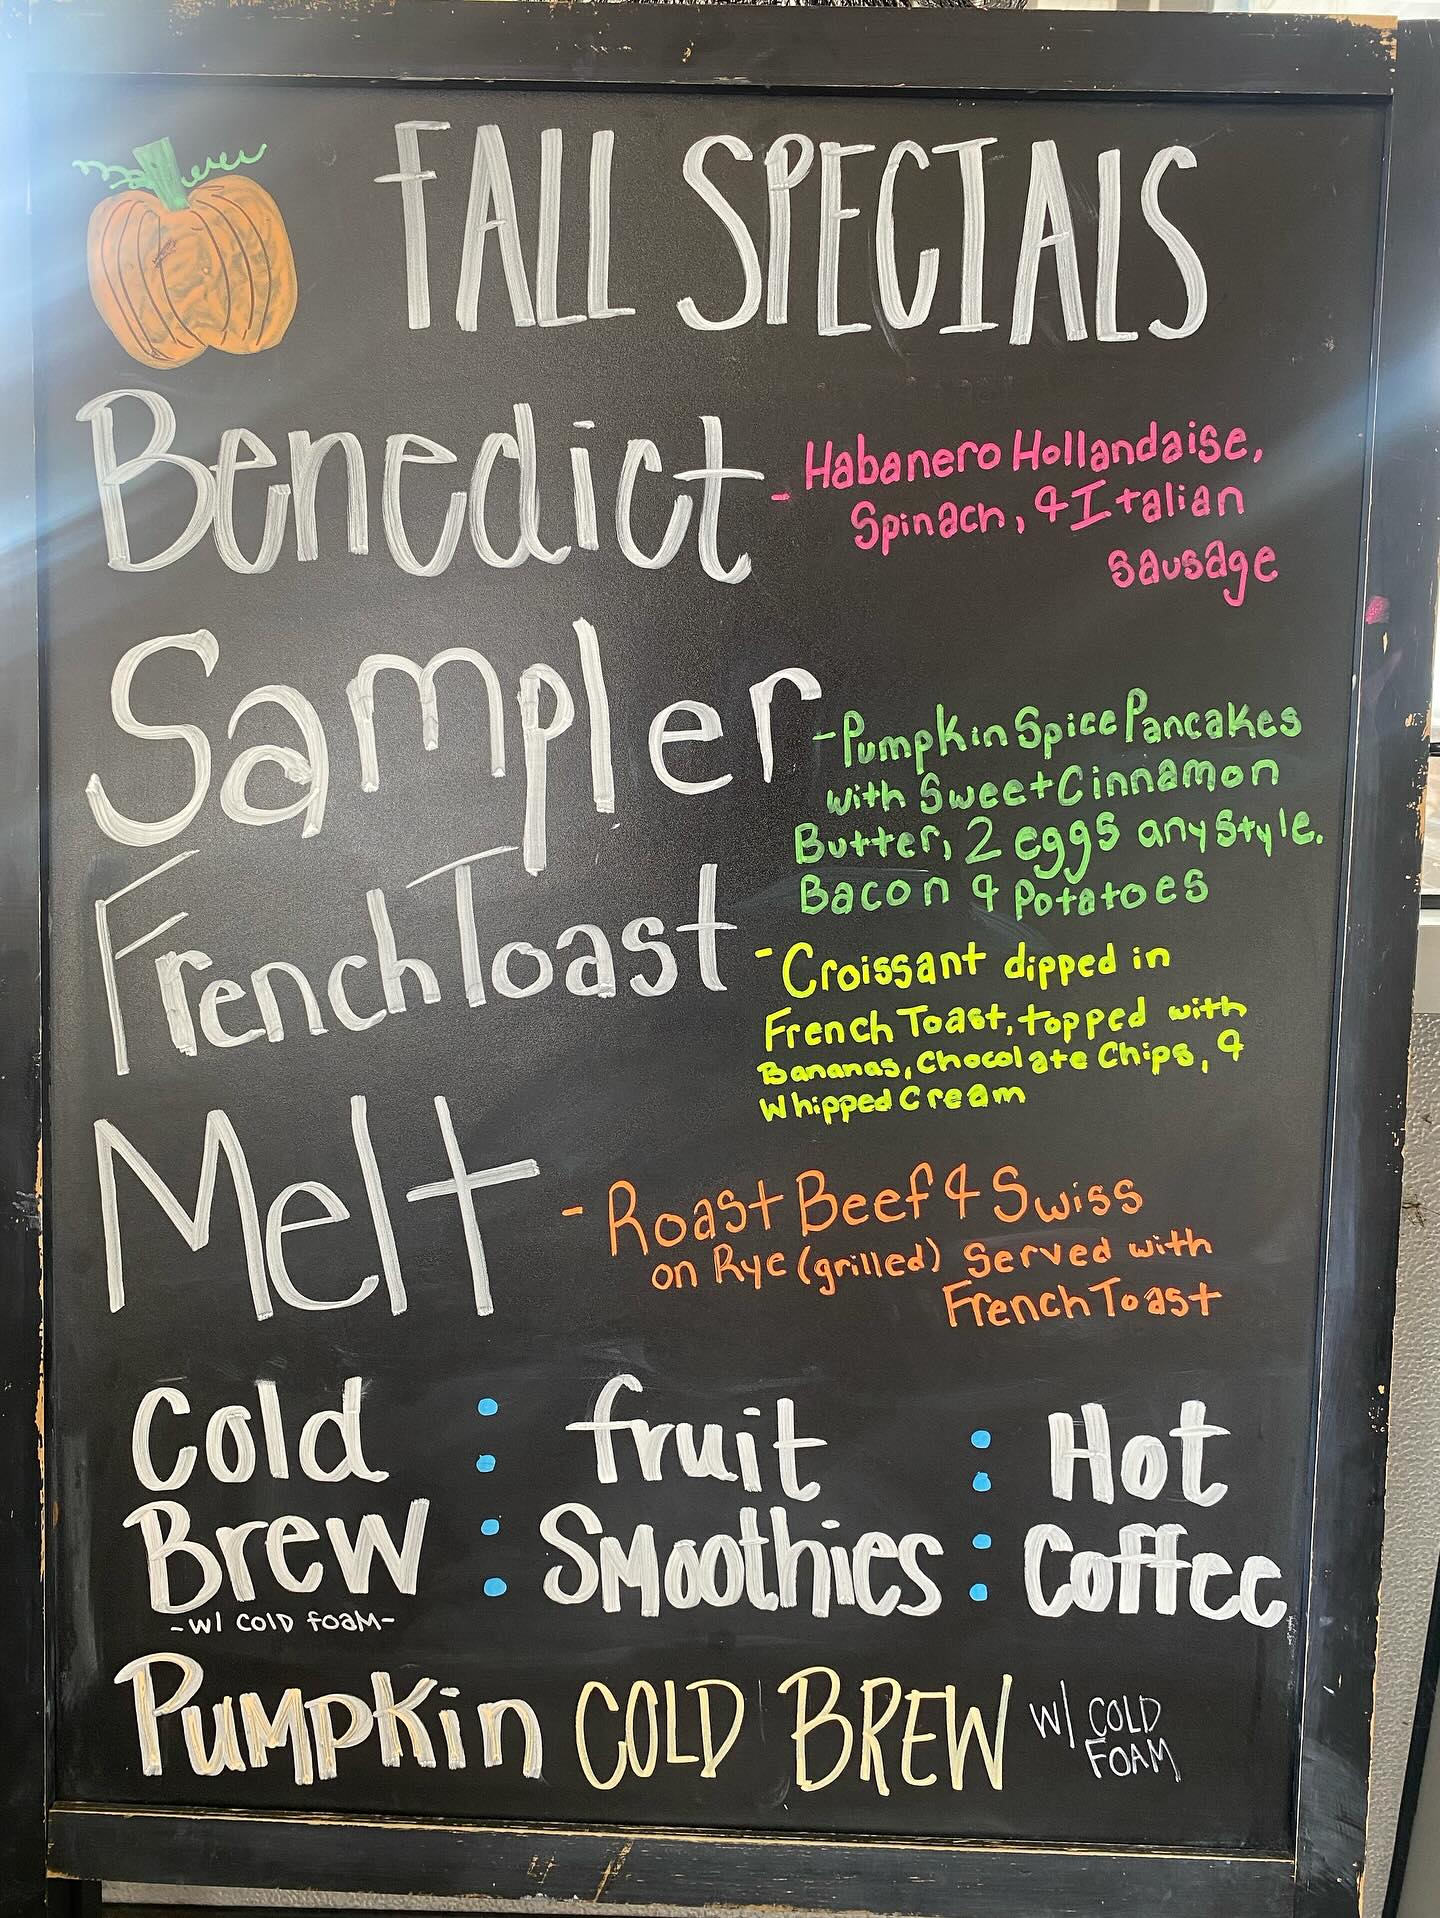 FALL SPECIALS
Benedict - Habanero Hollandaise,
Spinach, & Italian
sausage
Sampler - Pumpkin Spice Pancakes
with Sweet Cinnamon
Butter, 2 eggs any style.
Bacon & Potatoes
French Toast - Croissant dipped in
French Toast, topped with
Bananas, Chocolate Chips, &
Whipped Cream
Melt - Roast Beef & Swiss
on Rye (grilled) served with
French Toast
Cold : fruit : Hot
Brew : Smoothies : Coffee
-w/ COLD FOAM-
Pumpkin COLD BREW w/ COLD
FOAM